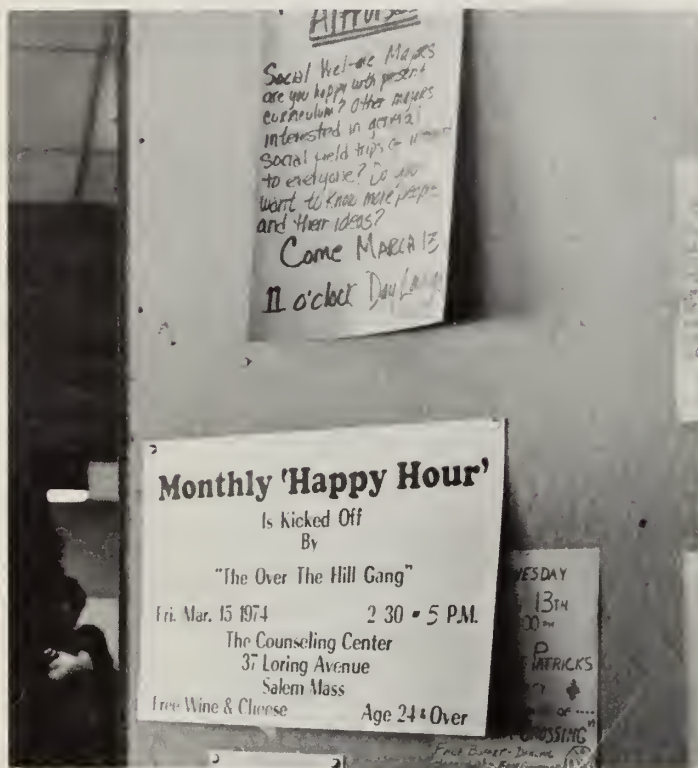 Altruism
Social Welfare Majors
are you happy with present
curriculum? Other majors
interested in actual
social field trips
to everyone? Do you
want to know more people
and their ideas?
Come MARCH 13
11 o'clock Day
Monthly 'Happy Hour'
Is Kicked Off
By
"The Over The Hill Gang"
Fri. Mar. 15 1974 2 30 - 5 P.M.
The Counseling Center
37 Loring Avenue
Salem Mass
Free Wine & Cheese Age 24 & Over
ESDAY
13TH
00 PM
P
PATRICKS
OF ....
CROSSING"